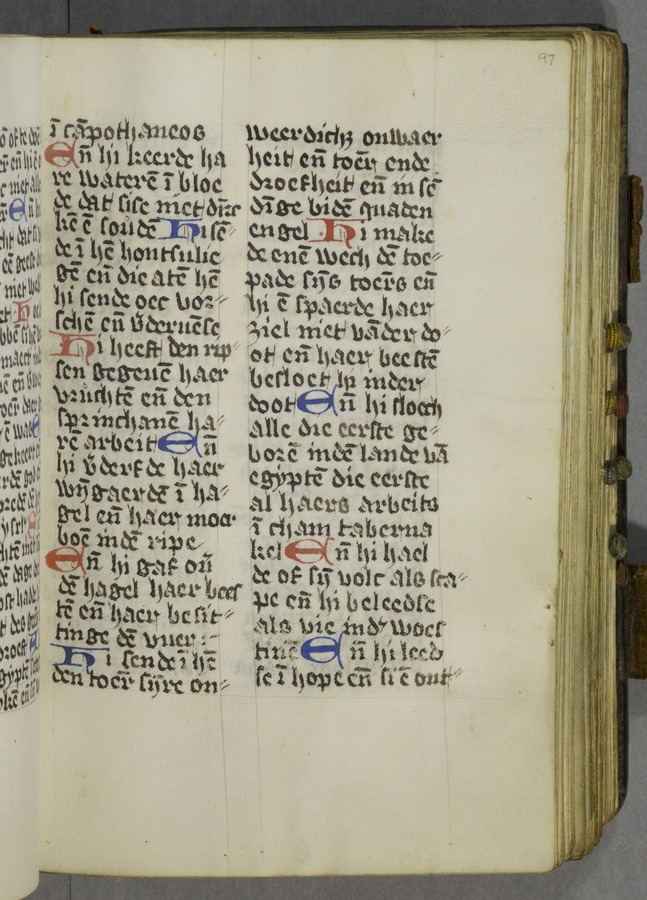 97
ī cāpothaneos
En̄ hi keerde ha
re waterē ī bloe
de dat sise niet dr̄c
kē ē soudē Hi sē⸗
de ī hē hontsulie
gē en̄ die atē hē
hi sende oec vor⸗
schē en̄ v̄deruēse
Hi heeft den rip⸗
sen gegeuē haer
vruchtē en̄ den
sprinchanē ha⸗
rē arbeit En̄
hi v̄derfde haer
wijgaerdē ī ha⸗
gel en̄ haer moer
boē indē ripe
En̄ hi gaf ou̅
dē hagel haer bees
tē en̄ haer besit⸗
tinge dē vuer
Hi sende ī hē
den toer̄ sijre on⸗
weerdicħ onwaer
heit en̄ toer̄ ende
droefheit en̄ in sē
dīge bidē quaden
engel Hi make
de enē wech dē toe⸗
pade sijs toers en̄
hi ē spaerde haer
ziel niet vāder do⸗
ot en̄ haer beestē
besloet hi inder
doot En̄ hi sloech
alle die eerste ge⸗
borē indē lande vā
egyptē die eerste
al haers arbeits
ī cham taberna
kel En̄ hi hael
de of sij volc als sca⸗
pe en̄ hi beleedse
als vie ind' woes
tinē En̄ hi leed
se ī hope en̄ si ē ont⸗